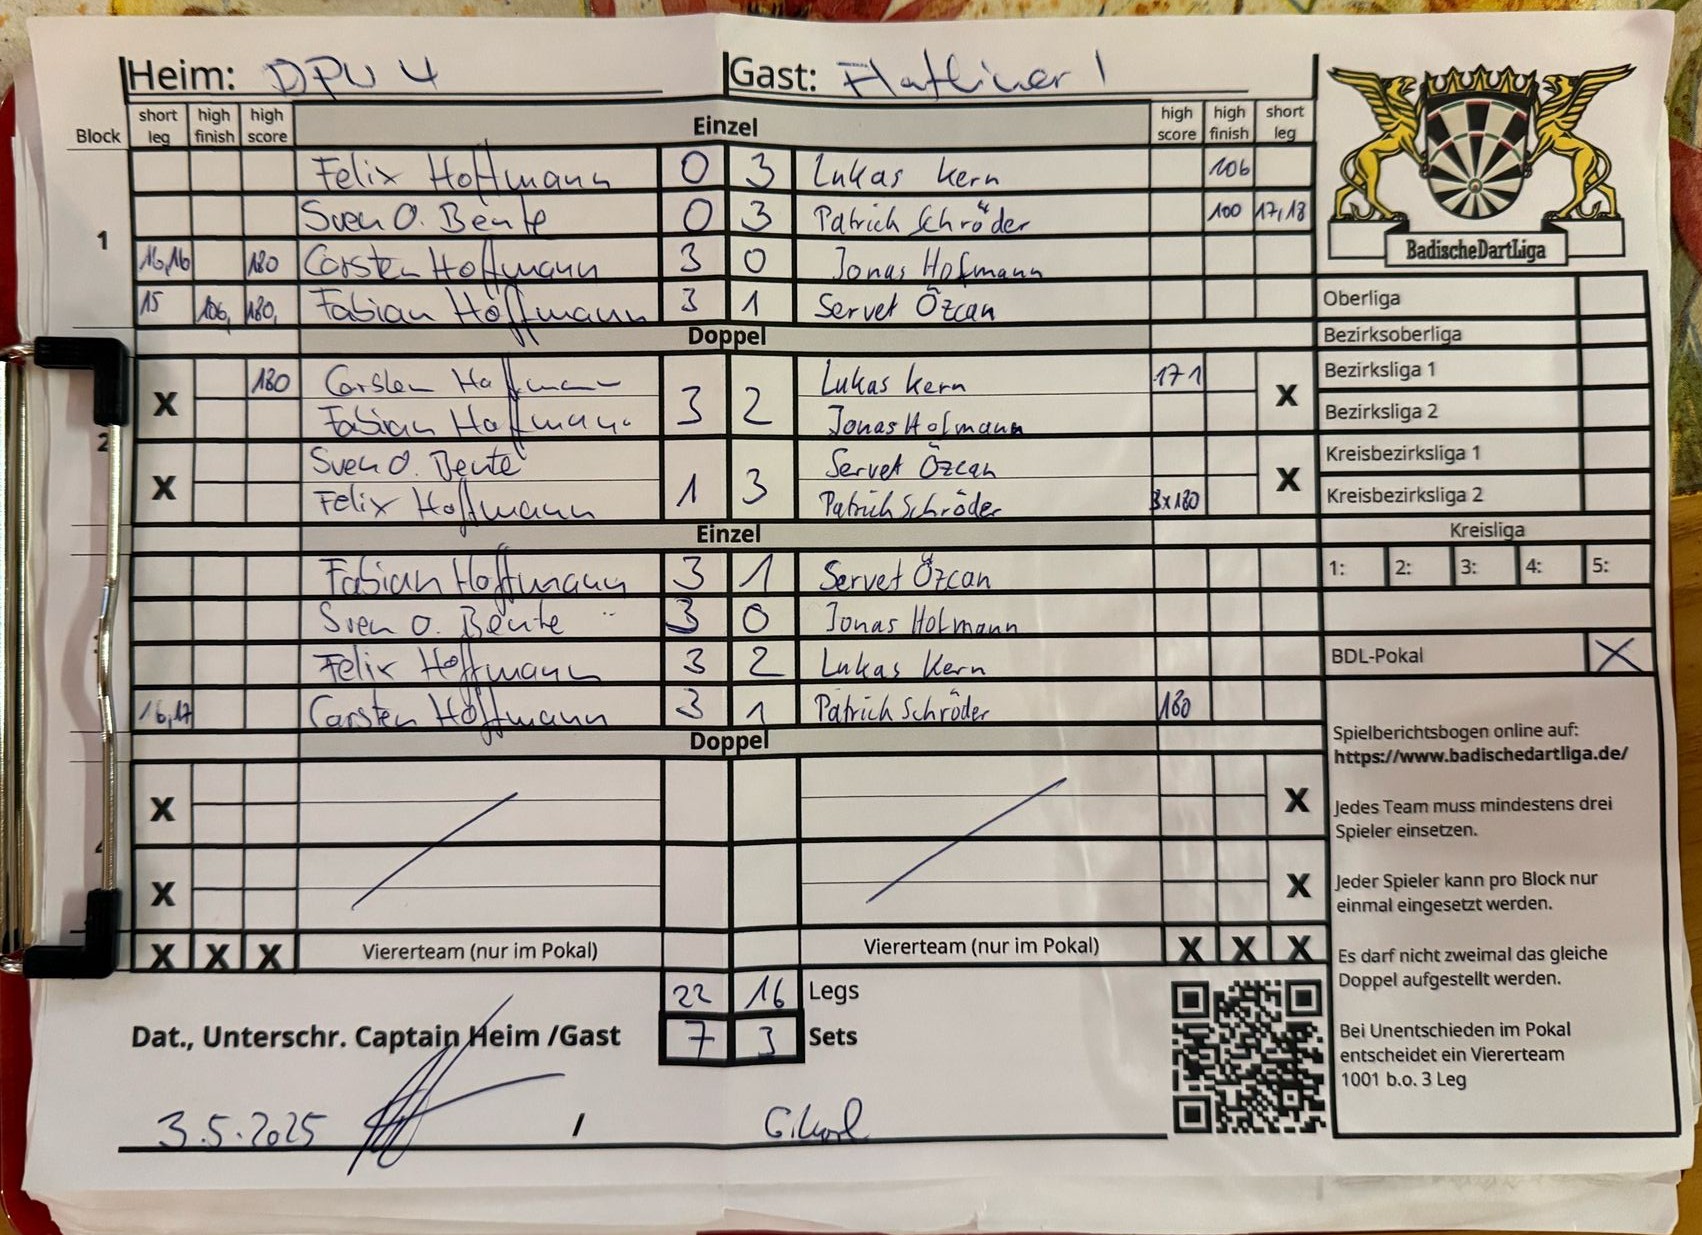 Heim: DPU 4 Gast: Flatliner 1
Block short leg high finish high score Einzel high score high finish short leg
1
Felix Hoffmann 0 3 Lukas Kern 106
Sven O. Beute 0 3 Patrick Schröder 100 17,18
16,16 180 Carsten Hoffmann 3 0 Jonas Hofmann
15 106, 180, Fabian Hoffmann 3 1 Servet Özcan
Doppel
2
X 180 Carsten Hoffmann 3 2 Lukas Kern 171 X
Fabian Hoffmann Jonas Hofmann
X Sven O. Beute 1 3 Servet Özcan X
Felix Hoffmann Patrick Schröder 3x180
Einzel
Fabian Hoffmann 3 1 Servet Özcan
Sven O. Beute 3 0 Jonas Hofmann
Felix Hoffmann 3 2 Lukas Kern
16,17 Carsten Hoffmann 3 1 Patrick Schröder 180
Doppel
X X
X X
X X X Viererteam (nur im Pokal) Viererteam (nur im Pokal) X X X
22 16 Legs
Dat., Unterschr. Captain Heim /Gast 7 3 Sets
3.5.2025 /
BadischeDartLiga
Oberliga
Bezirksoberliga
Bezirksliga 1
Bezirksliga 2
Kreisbezirksliga 1
Kreisbezirksliga 2
Kreisliga
1: 2: 3: 4: 5:
BDL-Pokal X
Spielberichtsbogen online auf:
https://www.badischedartliga.de/
Jedes Team muss mindestens drei
Spieler einsetzen.
Jeder Spieler kann pro Block nur
einmal eingesetzt werden.
Es darf nicht zweimal das gleiche
Doppel aufgestellt werden.
Bei Unentschieden im Pokal
entscheidet ein Viererteam
1001 b.o. 3 Leg